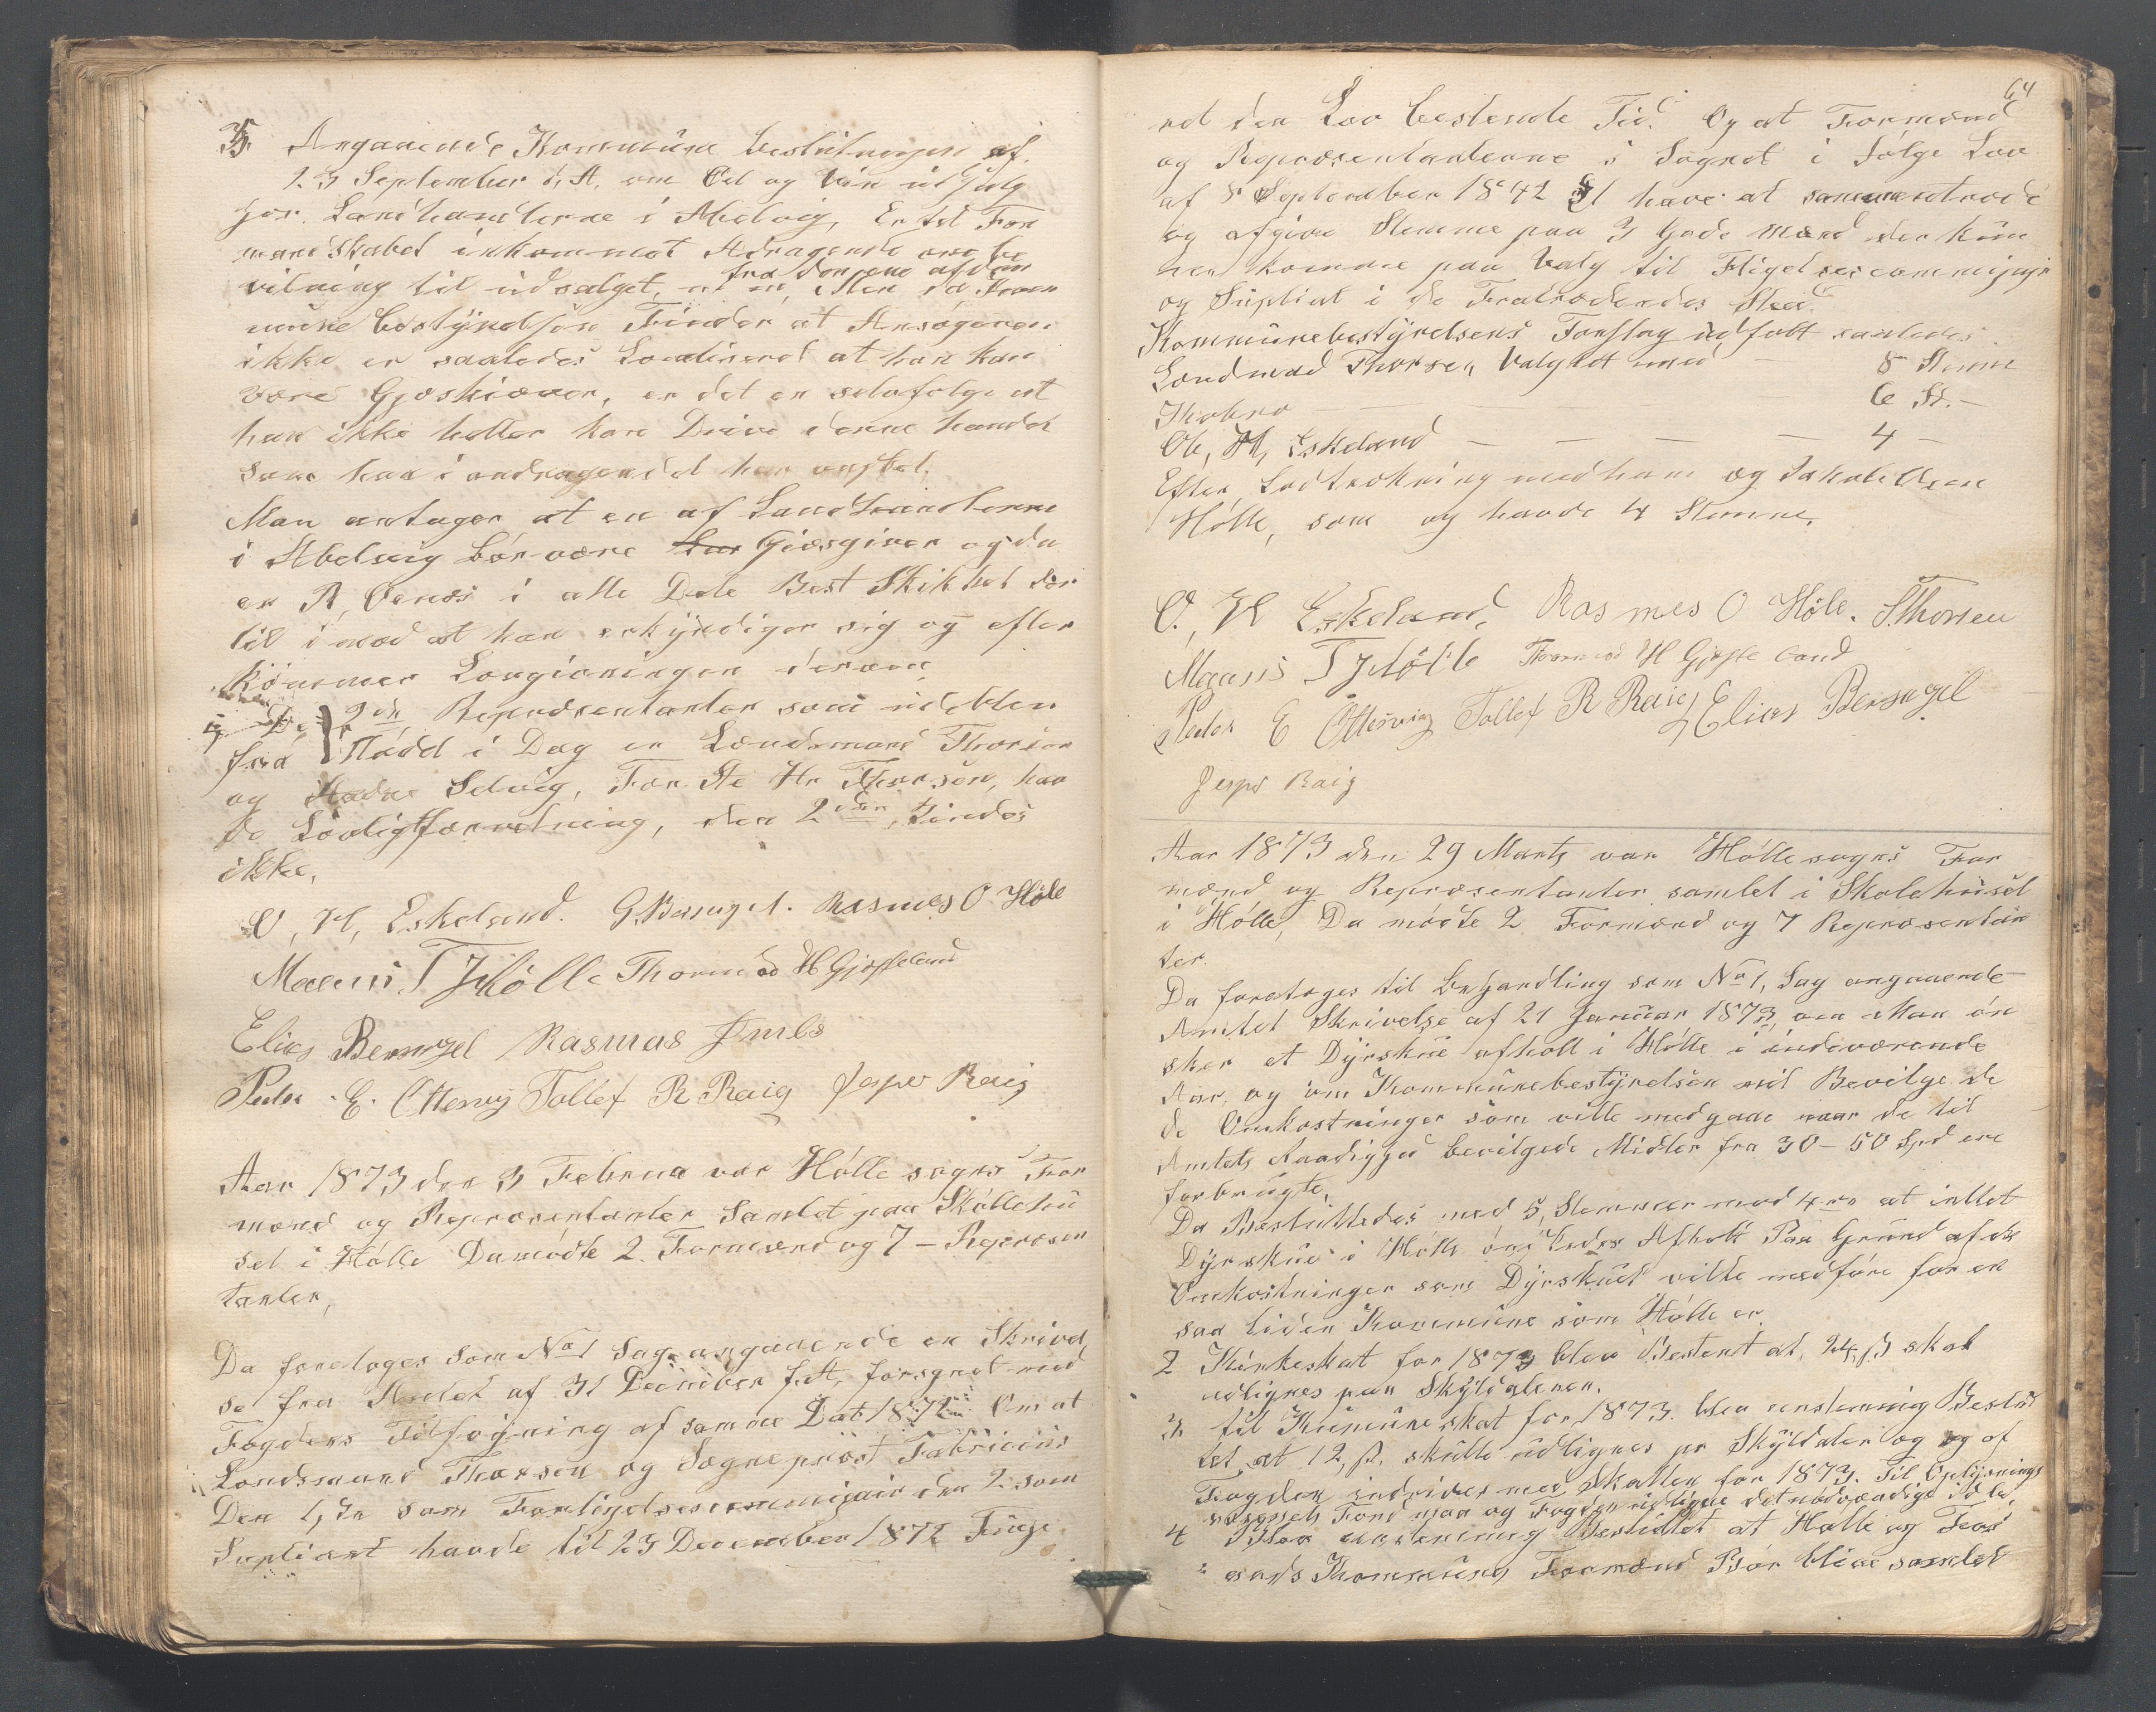 Angaaende Kommune beslutningen af
23 September d, A, om Øel og Vin udsalg
hos Landhandlerne i Abelvig, Er til For
mandskabet inkommet Adragende om be
vilning til udsalget, fra den ene af dem
Men da Kom
mune bestyrelsen Finder at Ansøgeren
ikke er saaledes Localiseret at han kan
være Gjæskiæver, er det en selvfølge at
han ikke heller kan Drive denne handel
som han i andragendet har ønsket.
Man antager at en af Landhandlerne
i Abelvig bør være Giæsgiver og da
er R, Oenæs i alle Dele Best Skikket der
til imod at han erkyndiger sig og efter
kommer Lovgivningen derom
De 2de Repræsentanter som udeblev
fra Mødd i Dag er Lændsmand Thorsen
og Aadne Selvig, For Ste Hr Thorsen, hav
de Lovligtforretning, den 2den, Findes
ikke,
O, H, Eskeland. G. Bersagel. Rasmes O Høle
Maanis T Høllе Thormod H Gjesteland
Elias Bersagel Rasmus Imls
Peder E. Ottesvig Tollef R Raig Jesper Raig
Aar 1873 den 3 Februa var Hølle sogns For
mænd og Repræsentanter Samlet paa Skollehu
set i Hølle Da mødte 2 Formænd og 7 – Repræsen
tanter,
Da foretoges som No 1 Sag angaaende en Skrivel
se fra Amtet af 31 December f. A, forsynet med
Fogdens Tilføyning af samme Dat 1872 Om at
Lændsmand Thorsen og Sogneprøst Fabricius
Den 1, te som Forligelsescommisair den 2 som
Supliant havde til 23 December 1872 Funge
64
ret den Lov bestemte Tid. Og at Formænd
og Repræsentanterne i Sognet i følge Lov
af 8 September 1842 have at sammentræde
og afgive Stemme paa 3 Gode Mænd der kun
ner komme paa Valg til Fligelsescommisair
og Supliat i de Fratrædendes Sted.
Kommunebestyrelsens Forslag udfalt saaledes
Lændmad Thorsen Valgt med – 8 Stemme
6 St. –
Ole, H, Eskeland – – – – 4 –
Efter Lodtrækning med ham og Jakob Olsen
Hølle, som og havde 4 Stemme,
O, H Eskeland, Rasmes O Høle. S. Thorsen
Maanis T Høllе Thormod H Gjesteland
Peder E Ottesvig Tollef R Raig Elias Bersagel
Jesper Raig
Aar 1873 den 29 Marts var Høllesogns For
mænd og Repræsentanter samlet i Skolehuset
i Hølle, Da mødte 2 Formænd og 7 Repræsentan
ter.
Da foretoges til behandling som No 1, Sag angaaende
Amtet Skrivelse af 21 Januar 1873, om Man øn
sker et Dyrskue afholt i Hølle i indeværende
Aar og om Kommunebestyrelsen vil Bevilge de
de Omkostninger som ville medgaae naar de til
Amtets Raadighed bevilgede Midler fra 30 – 50 Spd ere
forbrugte,
Da Besluttedes med 5, Stemmer mod 4re at intet
Dyrskue i Hølle ønskedes Afholt Paa Grund af de
Omkostninger som Dyrskuet ville medføre for en
saa liden Kommune som Hølle er.
2 Kirkeskat for 1873 blev Bestemt at 24 β skal
udlignes paa Skyldaleren.
3 til Kumuneskat for 1873 blev enstemmig Beslut
tet at 12, β. skulle udlignes pr Skyldaler og og af
Fogden indrives med Skatten for 1873. Til Oplysnings
væsenets Fond maa og Fogden udligne det nødvændige
4 Blev enstemmig Besluttet at Hølle og Fos
sands Kommunes Formænd Bør blive samlet